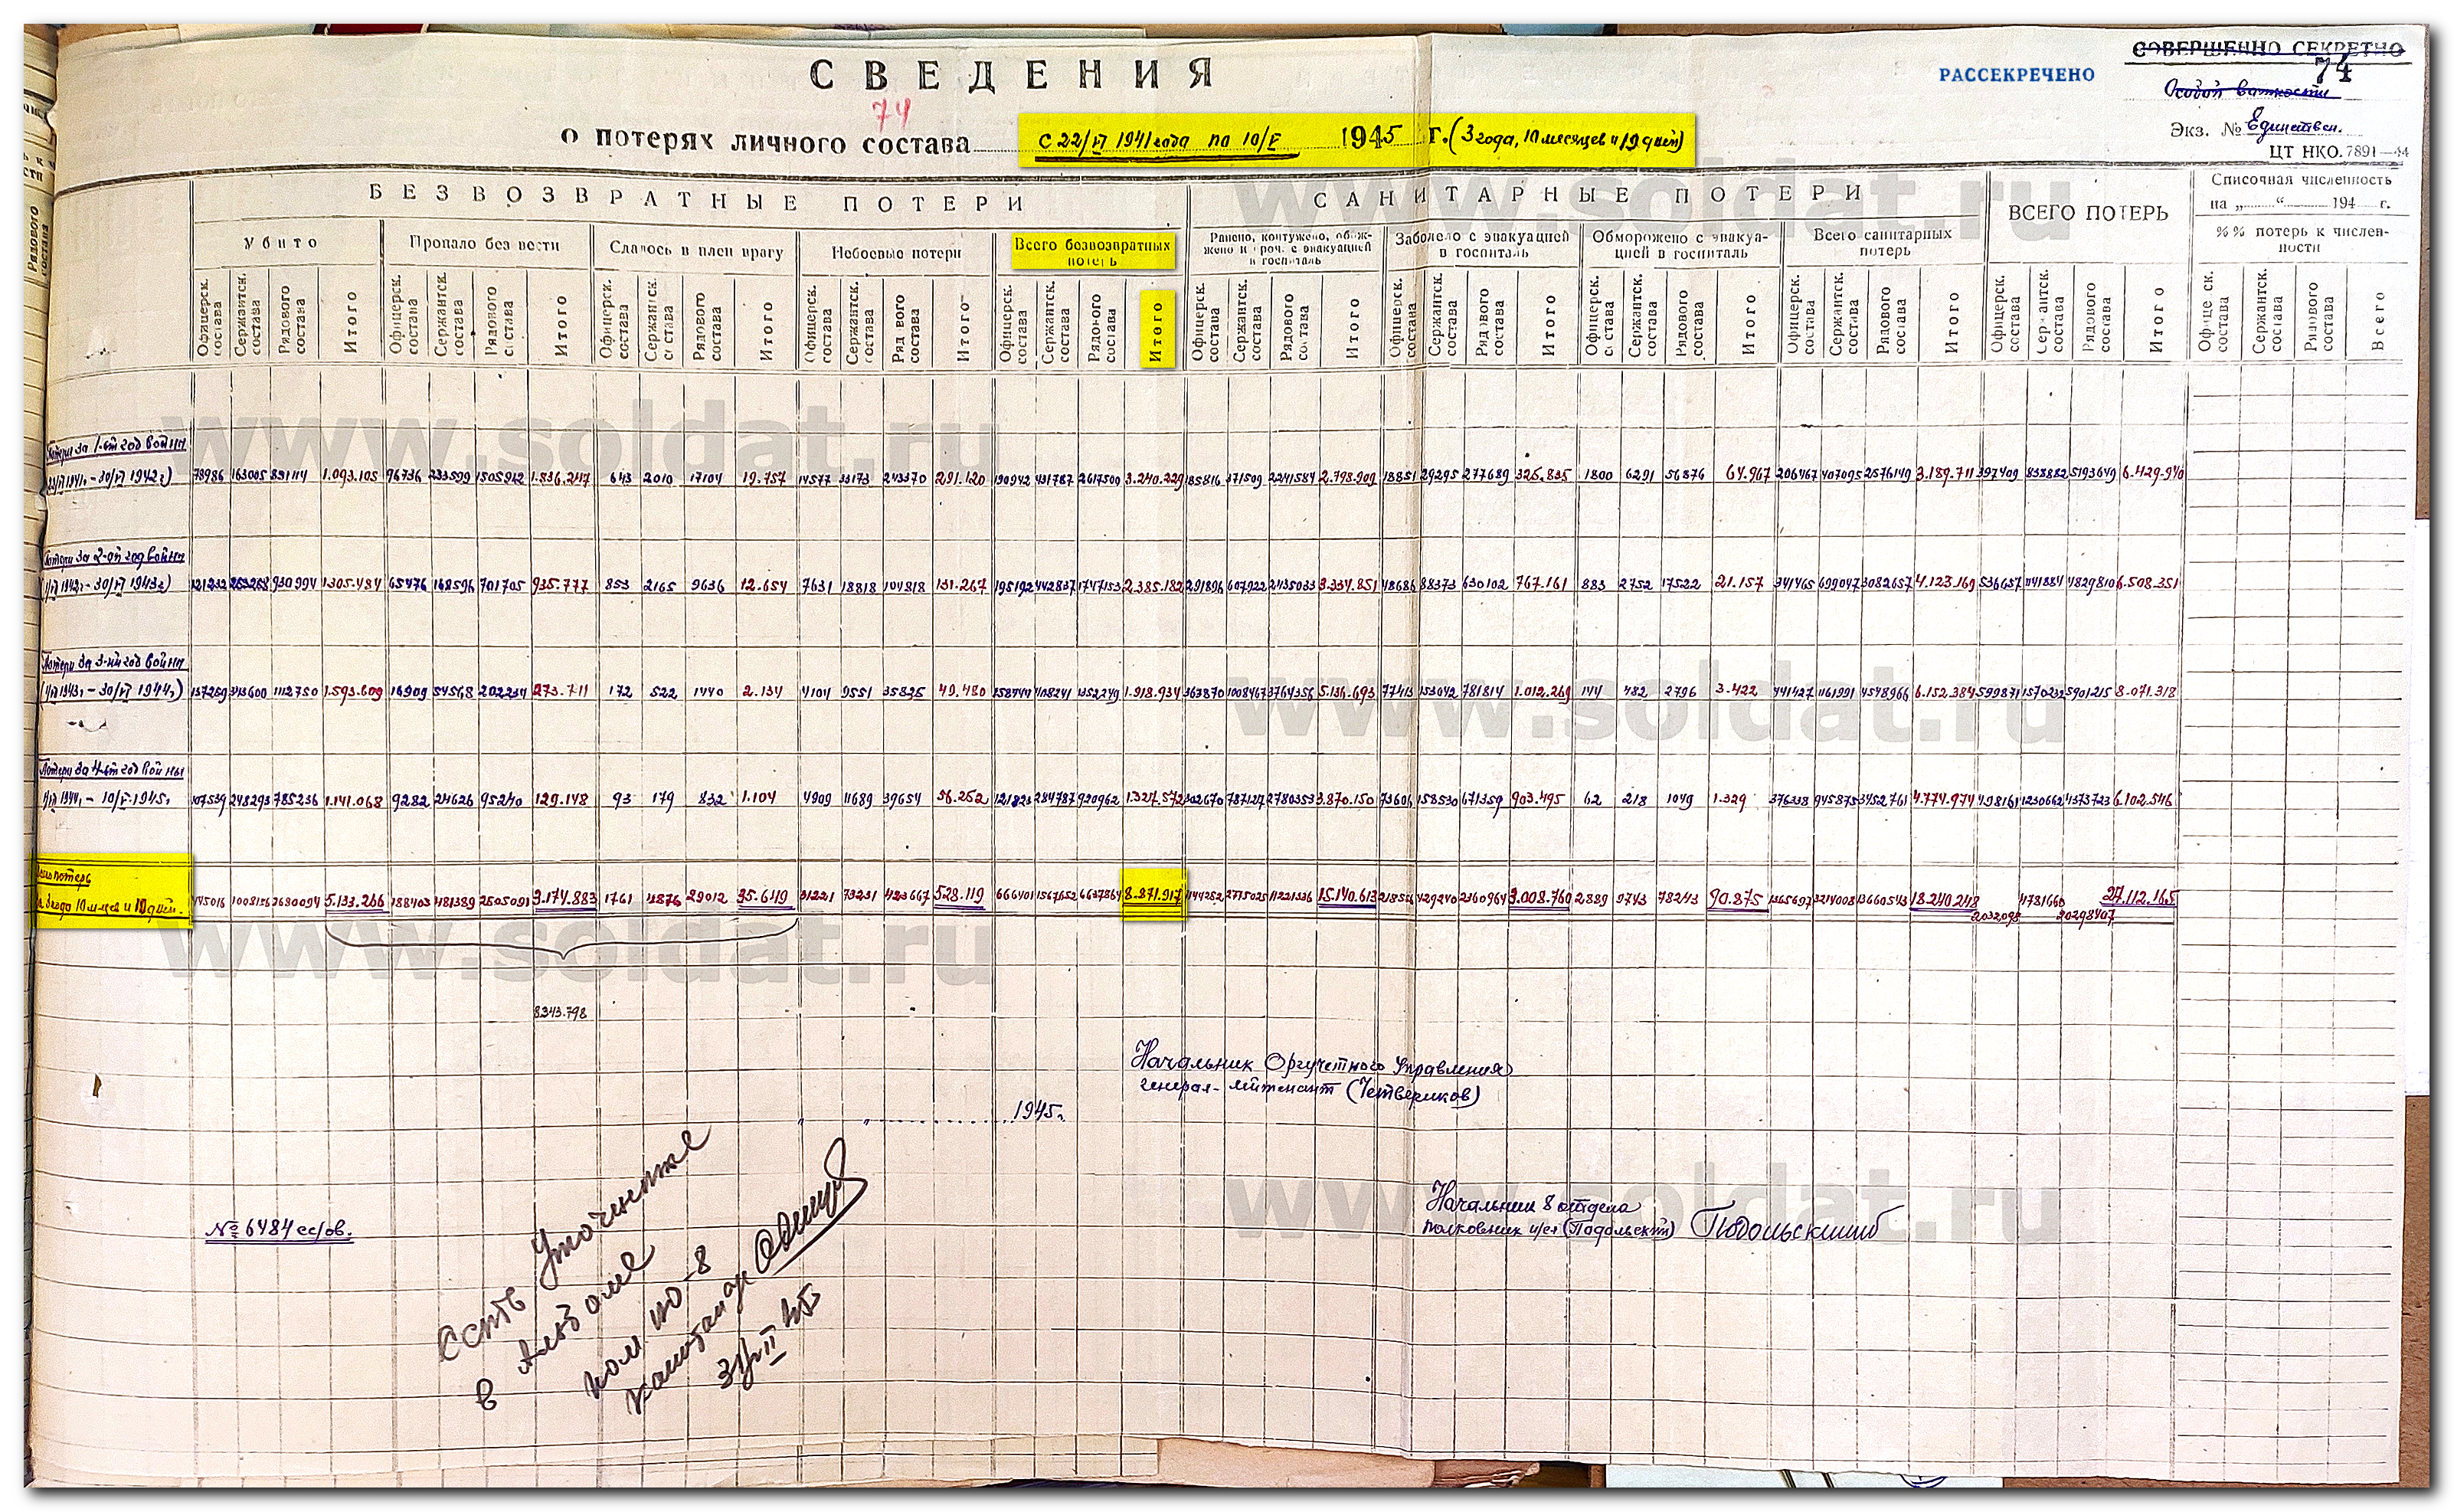 СОВЕРШЕННО СЕКРЕТНО
РАССЕКРЕЧЕНО
74
Особой важности
Экз. № Единствен.
ЦТ НКО. 7891—44
СВЕДЕНИЯ
74
о потерях личного состава с 22/VI 1941 года по 10/V 1945 г. (3 года, 10 месяцев и 19 дней)
БЕЗВОЗВРАТНЫЕ ПОТЕРИ
САНИТАРНЫЕ ПОТЕРИ
ВСЕГО ПОТЕРЬ
Списочная численность на „ “ 194 г.
%% потерь к численности
Убито
Пропало без вести
Сдалось в плен врагу
Небоевые потери
Всего безвозвратных потерь
Ранено, контужено, обожжено и проч. с эвакуацией в госпиталь
Заболело с эвакуацией в госпиталь
Обморожено с эвакуацией в госпиталь
Всего санитарных потерь
Офицерск. состава Сержантск. состава Рядового состава Итого
Офицерск. состава Сержантск. состава Рядового состава Итого
Офицерск. состава Сержантск. состава Рядового состава Итого
Офицерск. состава Сержантск. состава Рядового состава Итого
Офицерск. состава Сержантск. состава Рядового состава Итого
Офицерск. состава Сержантск. состава Рядового состава Итого
Офицерск. состава Сержантск. состава Рядового состава Итого
Офицерск. состава Сержантск. состава Рядового состава Итого
Офицерск. состава Сержантск. состава Рядового состава Итого
Офицерск. состава Сержантск. состава Рядового состава Итого
Офицерск. состава Сержантск. состава Рядового состава Всего
Потери за 1-ый год войны
22/VI 1941г. – 30/VI 1942г.) 78986 163005 851114 1.093.105 96736 233599 1505912 1.836.247 643 2010 17104 19.757 14577 33173 243370 291.120 190942 431787 2617500 3.240.229 185816 371509 2241584 2.798.909 18851 29295 277689 325.835 1800 6291 56876 64.967 206467 407095 2576149 3.189.711 397409 838882 5193649 6.429.940
Потери за 2-ой год войны
(1/VII 1942г. – 30/VI 1943г.) 121232 253258 930994 1.305.484 65476 168596 701705 935.777 853 2165 9636 12.654 7631 18818 104818 131.267 195192 442837 1747153 2.385.182 291896 607922 2435033 3.334.851 48686 88373 630102 767.161 883 2752 17522 21.157 341465 699047 3082657 4.123.169 536657 1141884 4829810 6.508.351
Потери за 3-ий год войны
(1/VII 1943г. – 30/VI 1944г.) 137259 343600 1112750 1.593.609 16909 54568 202234 273.711 172 522 1440 2.134 4104 9551 35825 49.480 158444 408241 1352249 1.918.934 363870 1008467 3764356 5.136.693 77413 153042 781814 1.012.269 144 482 2796 3.422 441427 1161991 4548966 6.152.384 599871 1570232 5901215 8.071.318
Потери за 4-ый год войны
1/VII 1944г. – 10/V-1945г. 107539 248293 785236 1.141.068 9282 24626 95240 129.148 93 179 832 1.104 4909 11689 39654 56.252 121823 284787 920962 1.327.572 302670 787127 2780353 3.870.150 73606 158530 671359 903.495 62 218 1049 1.329 376338 945875 3452761 4.774.974 498161 1230662 4373723 6.102.546
Всего потерь
за 3 года 10 м-цев и 19 дней. 445016 1008156 3680094 5.133.266 188403 481389 2505091 3.174.883 1761 4876 29012 35.619 31221 73231 423667 528.119 666401 1567652 6637864 8.871.917 1144252 2775025 11221336 15.140.613 218556 429240 2360964 3.008.760 2889 9743 78243 90.875 1365697 3214008 13660543 18.240.248 2032098 4781660 20298407 27.112.165
8.343.798
Начальник Оргучетного Управления
генерал-лейтенант (Четвериков)
1945г.
Начальник 8 отдела
полковник и/сл (Подольский) Подольский
№ 6484 сс/ов.
Есть уточнение
в Альбоме
www.soldat.ru
www.soldat.ru
www.soldat.ru
www.soldat.ru
www.soldat.ru